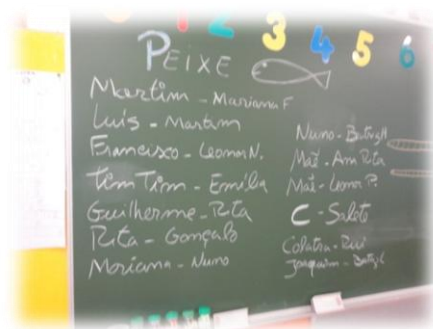 1 2 3 4 5 6
PEIXE
Martim - Mariana F.
Luis - Martim
Francisco - Leonor N.
Tim Tim - Emília
Guilherme - Rita
Rita - Gonçalo
Mariana - Nuno
Nuno -
Maf - Am Rita
Maf - Leonor P.
C - Salete
Colatra - Rui
Joaquim -